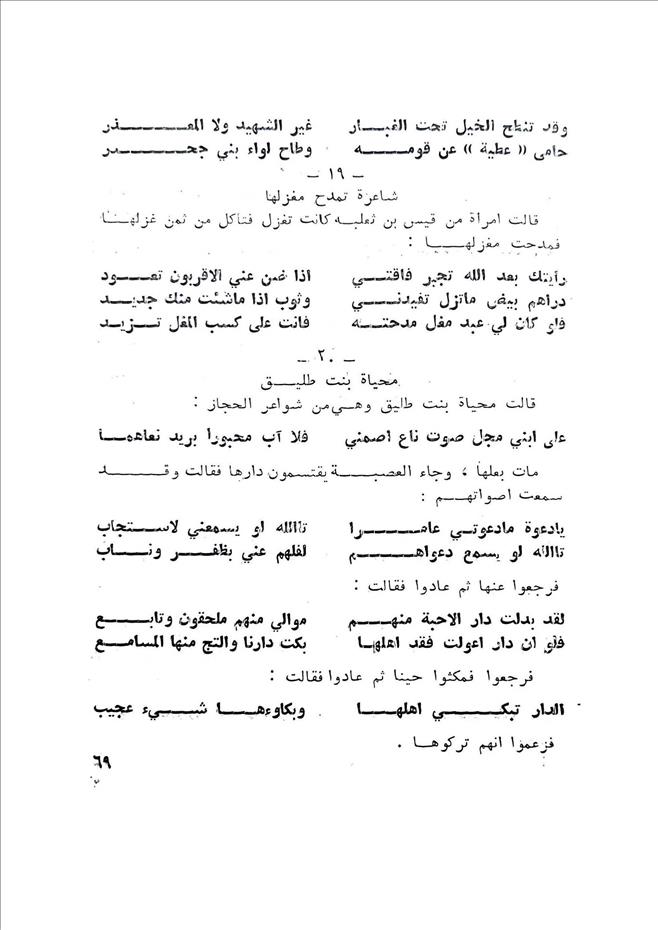 وقد تنطح الخيل تحت الغبار غير الشهيد ولا المعذر
حامى « عطية » عن قومه وطاح لواء بني جحدر
– ١٩ –
شاعرة تمدح مغزلها
قالت امرأة من قيس بن ثعلبه كانت تغزل فتاكل من ثمن غزلهما
فمدحت مغزلها :
رأيتك بعد الله تجبر فاقتي اذا ضن عني الاقربون تعود
دراهم بيض ماتزل تفيدني وثوب اذا ماشئت منك جديد
فلو كان لي عبد مغل مدحته فانت على كسب المغل تزيد
– ٢٠ –
محياة بنت طليق
قالت محياة بنت طليق وهي من شواعر الحجاز :
على ابني مجل صوت ناع اصمني فلا آب محبورا بريد نعاهما
مات بعلها ، وجاء العصبة يقتسمون دارها فقالت وقد
سمعت اصواتهم :
يادعوة مادعوتي عامرا تاالله لو يسمعني لاستجاب
تاالله لو يسمع دعواهم لفلهم عني بظفر وناب
فرجعوا عنها ثم عادوا فقالت :
لقد بدلت دار الاحبة منهم موالي منهم ملحقون وتابع
فلو ان دار اعولت فقد اهلها بكت دارنا والتج منها المسامع
فرجعوا فمكثوا حينا ثم عادوا فقالت :
الدار تبكي اهلها وبكاوءها شيء عجيب
فزعموا انهم تركوها .
٦٩